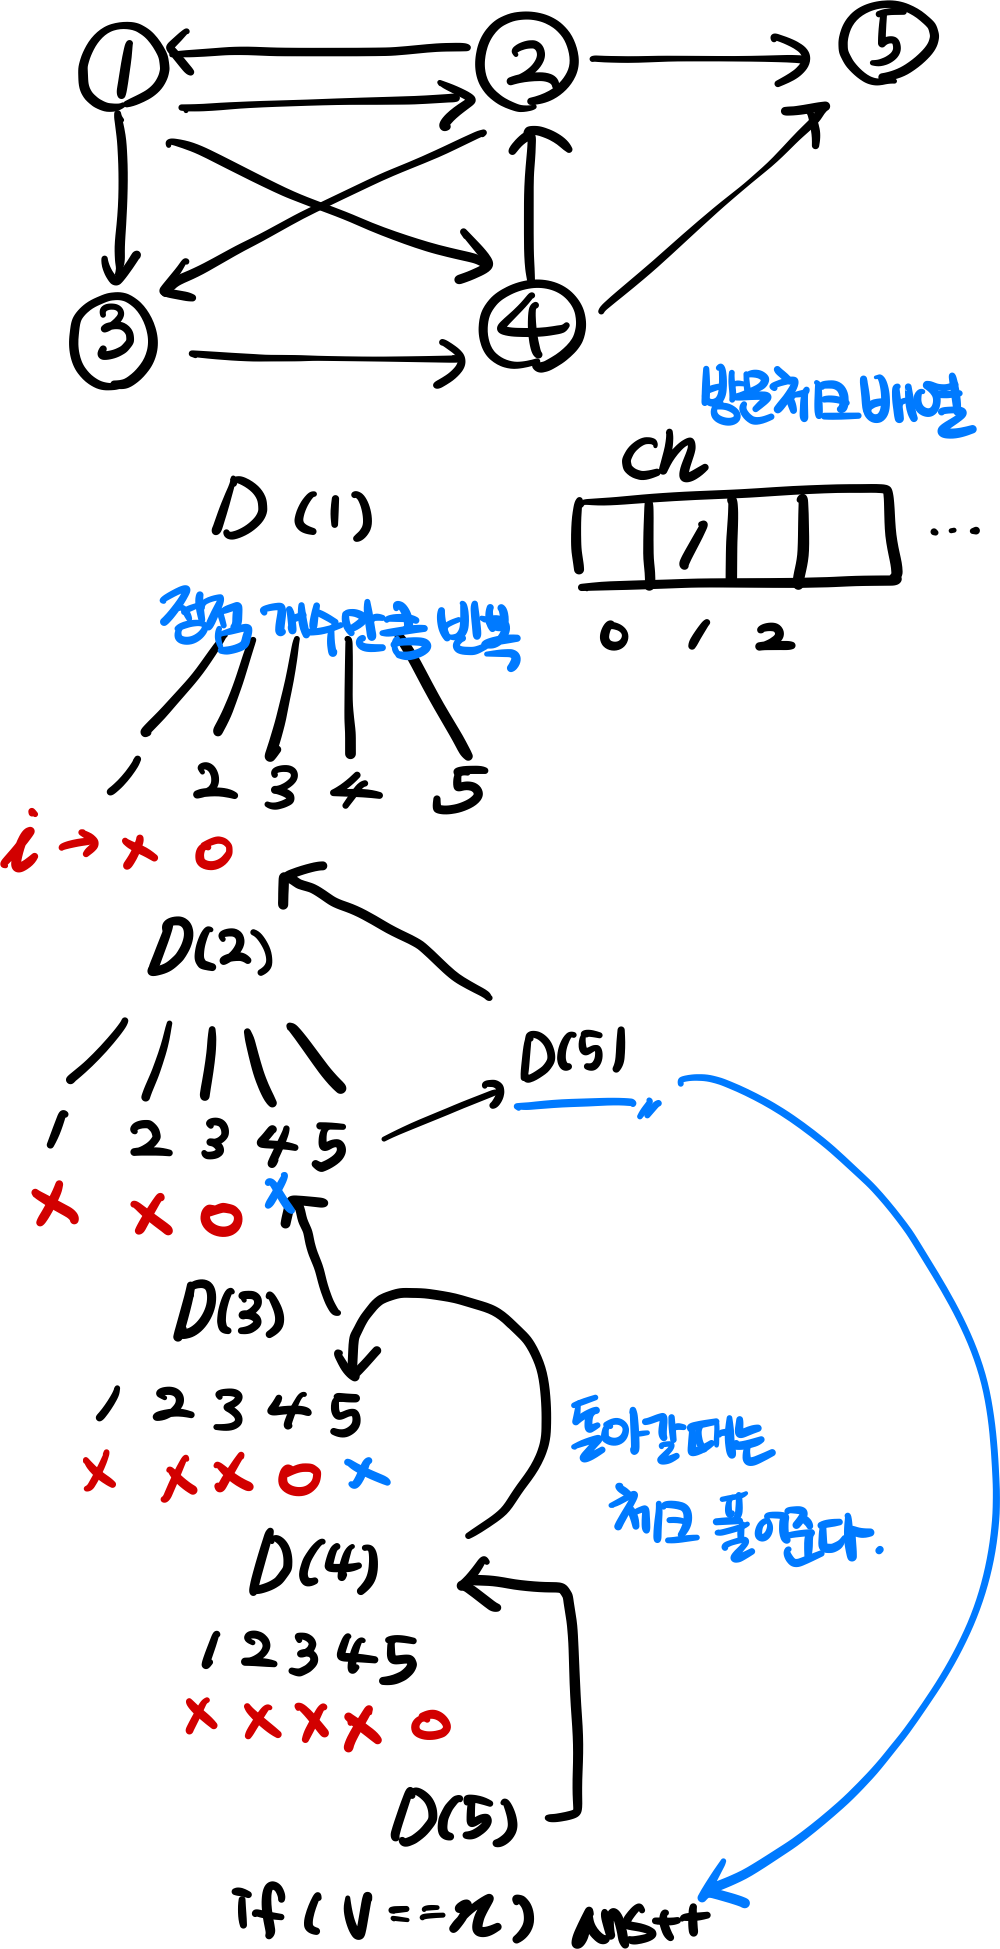 1 2 5
3 4
방문체크배열
ch
D(1)
1
...
0 1 2
정점 개수만큼 반복
1 2 3 4 5
i → x o
D(2)
D(5)
1 2 3 4 5
x x o x
D(3)
1 2 3 4 5
x x x o x
돌아갈때는
체크 풀어준다.
D(4)
1 2 3 4 5
x x x x o
D(5)
if(v==n) ans++